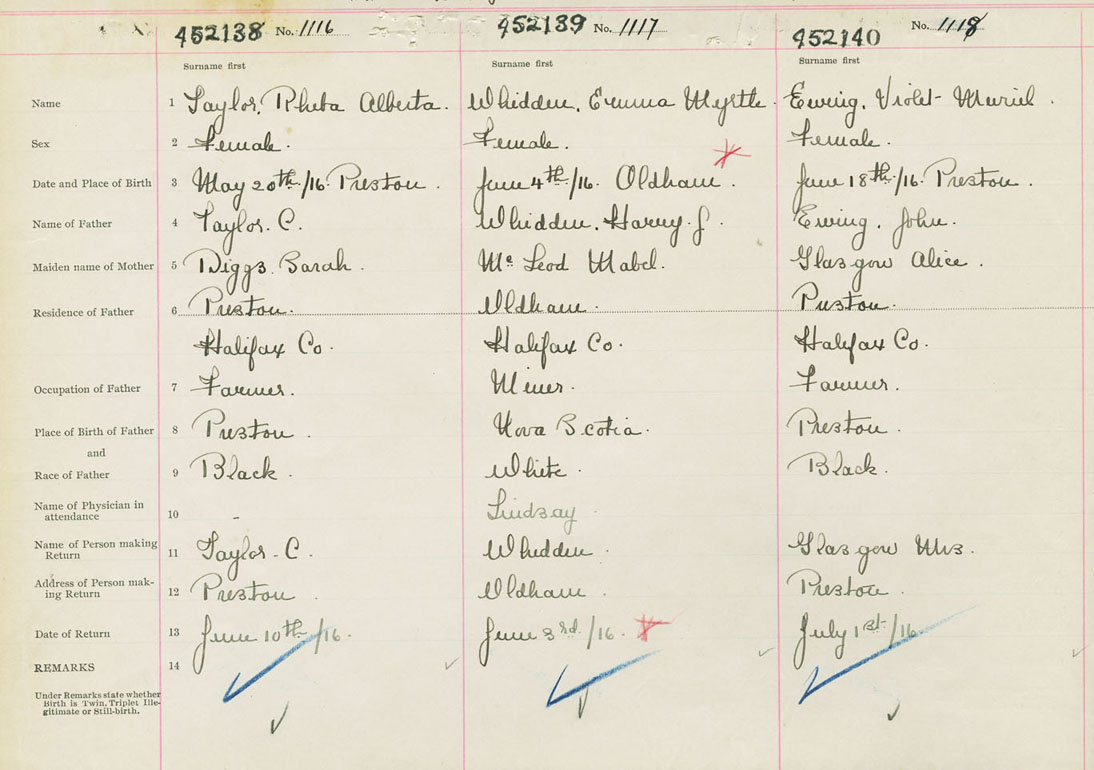 452138 No. 1116 452139 No. 1117 452140 No. 1118
Surname first Surname first Surname first
Name 1 Taylor, Rheta Alberta. Whidden, Emma Myrtle. Ewing, Violet Muriel.
Sex 2 Female. Female. Female.
Date and Place of Birth 3 May 20th/16. Preston. June 4th/16. Oldham. June 18th/16. Preston.
Name of Father 4 Taylor. C. Whidden, Harry. J. Ewing, John.
Maiden name of Mother 5 Diggs. Sarah. Mc Leod Mabel. Glasgow Alice.
Residence of Father 6 Preston. Oldham. Preston.
Halifax Co. Halifax Co. Halifax Co.
Occupation of Father 7 Farmer. Miner. Farmer.
Place of Birth of Father 8 Preston. Nova Scotia. Preston.
and
Race of Father 9 Black. White. Black.
Name of Physician in
attendance 10 - Lindsay
Name of Person making
Return 11 Taylor - C. Whidden. Glasgow Mrs.
Address of Person mak-
ing Return 12 Preston. Oldham. Preston.
Date of Return 13 June 10th/16. June 3rd/16. July 1st/16
REMARKS 14
Under Remarks state whether
Birth is Twin, Triplet Ille-
gitimate or Still-birth.